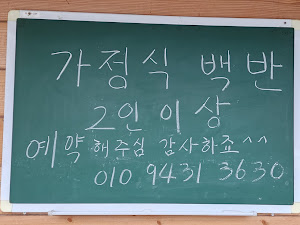 가정식 백반
2인이상
예약해주심 감사하죠^^
010 9431 3630